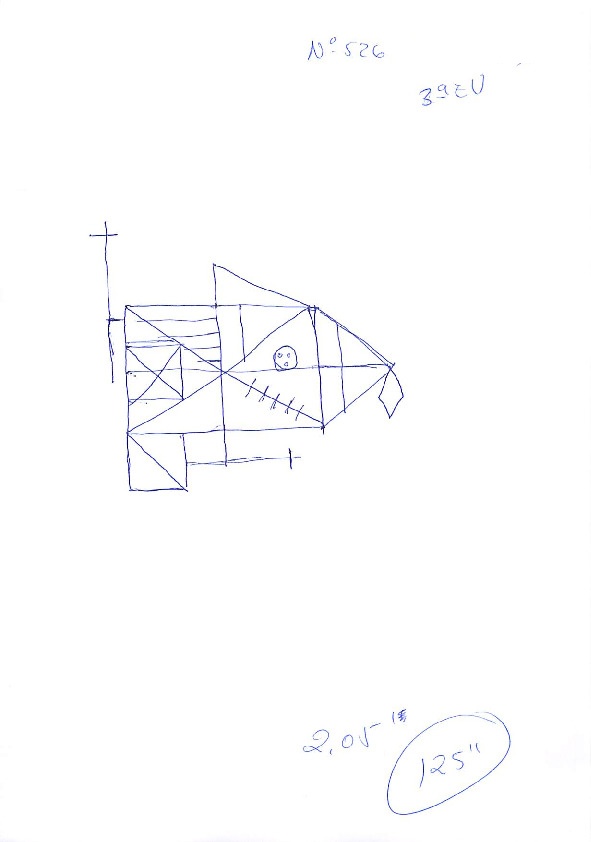 Nº 526
3ª EV
2.05"
125"